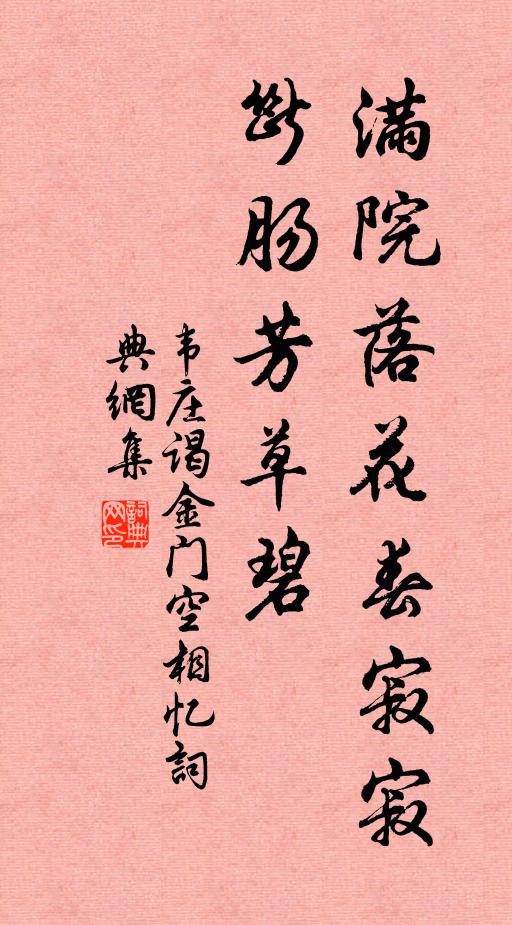 满院落花春寂寂
断肠芳草碧
韦庄谒金门空相忆词
典网集
词典网印